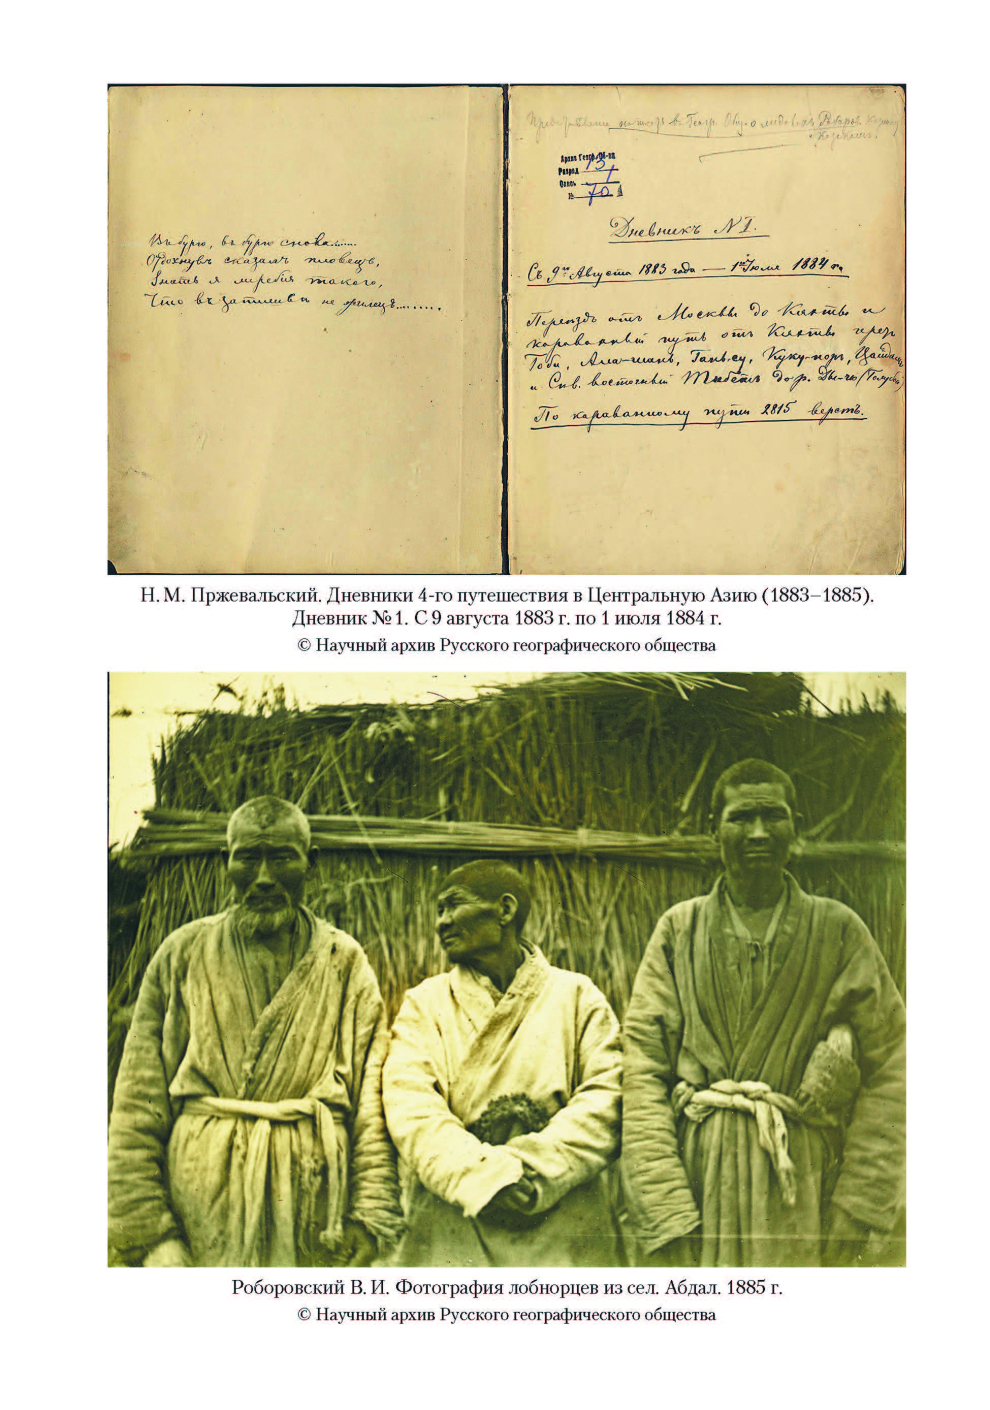 Въ бурю, въ бурю снова......
Отдохнувъ сказалъ пловецъ,
Знать я жребія такого,
Что въ затишьи не жилецъ........
Архив Геогр. Об-ва
Разряд 13
Опись 1
№ 70
Дневникъ N I.
Съ 9го Августа 1883 года — 1е Іюля 1884 г.
Переѣздъ отъ Москвы до Кяхты и
караванный путь отъ Кяхты чрезъ
Гоби, Ала-шань, Гань-су, Куку-норъ, Цайдамъ
и Сѣв. восточный Тибетъ до р. Ды-чю
По караванному пути 2815 верстъ.
Н. М. Пржевальский. Дневники 4-го путешествия в Центральную Азию (1883–1885).
Дневник № 1. С 9 августа 1883 г. по 1 июля 1884 г.
© Научный архив Русского географического общества
Роборовский В. И. Фотография лобнорцев из сел. Абдал. 1885 г.
© Научный архив Русского географического общества